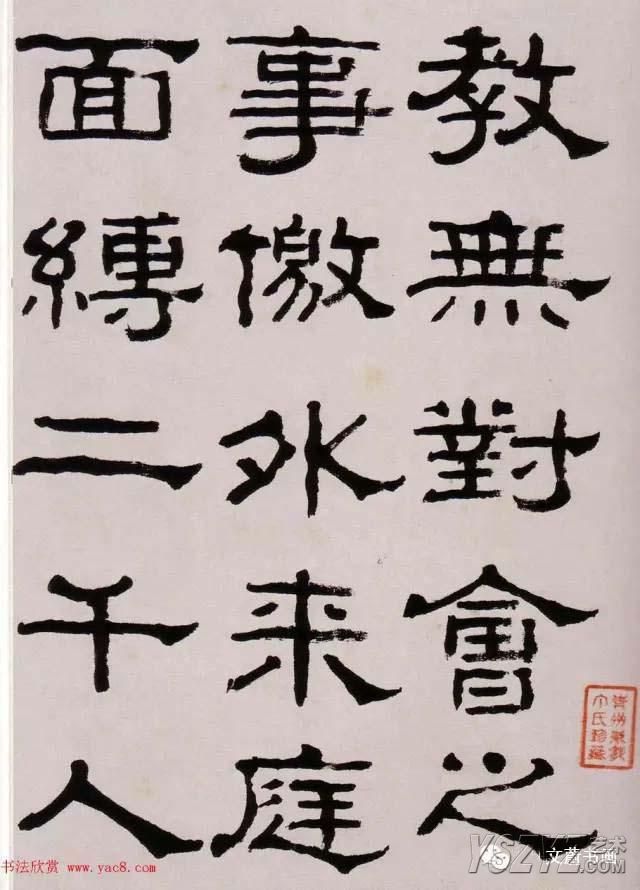 教無對會之
事儌外来庭
面縛二千人
书法欣赏 www.yac8.com
YSZYZ 艺术
文蕾书画